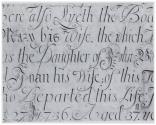 Here also lyeth the Bod
Mary his Wife, the which
as the Daughter of
Anan his Wife, of this
who Departed this Life
1736. Aged 37